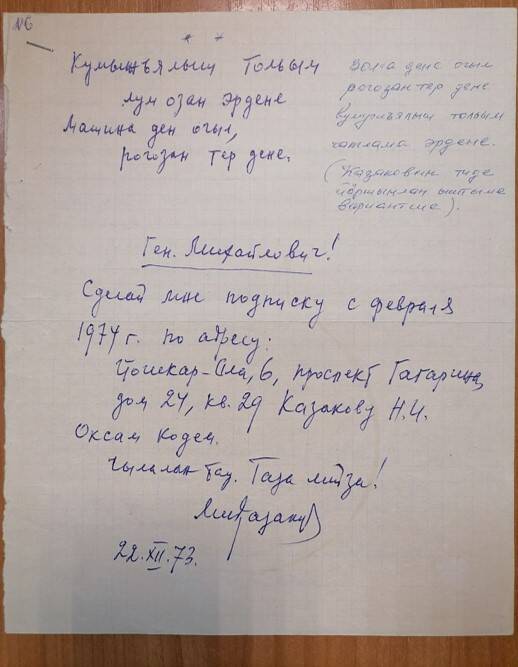 №6
* *
Кумыжъялыш Толым
лум озан эрдене
Машина ден огыл,
рогозан тер дене.
Волга дене огыл
рогозан тер дене
Кумужъялыш толым
эрдене.
(Казаковын тиде
вариантше).
Ген. Михайлович!
Сделай мне подписку с февраля
1974 г. по адресу:
Йошкар-Ола, 6, проспект Гагарина,
дом 24, кв. 29 Казакову Н.И.
Оксам кодем.
Чылалан тау. Таза лийза!
22.XII.73.